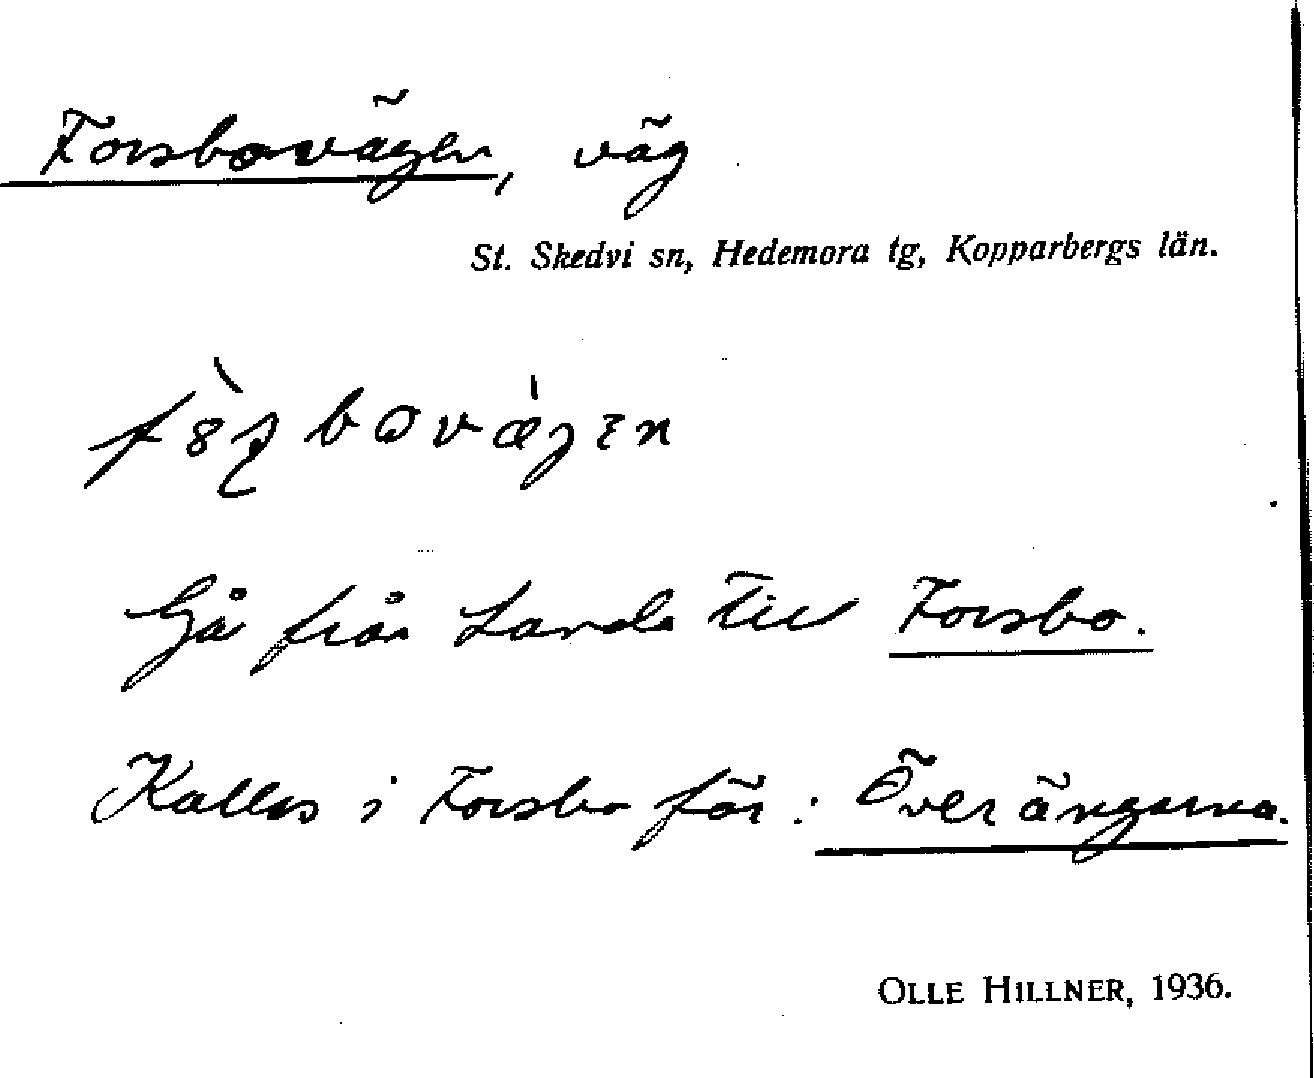 Forsbovägen, väg
St. Skedvi sn, Hedemora tg, Kopparbergs län.
Gå från Landa till Forsbo.
Kallas i Forsbo för: Över ängarna.
OLLE HILLNER, 1936.